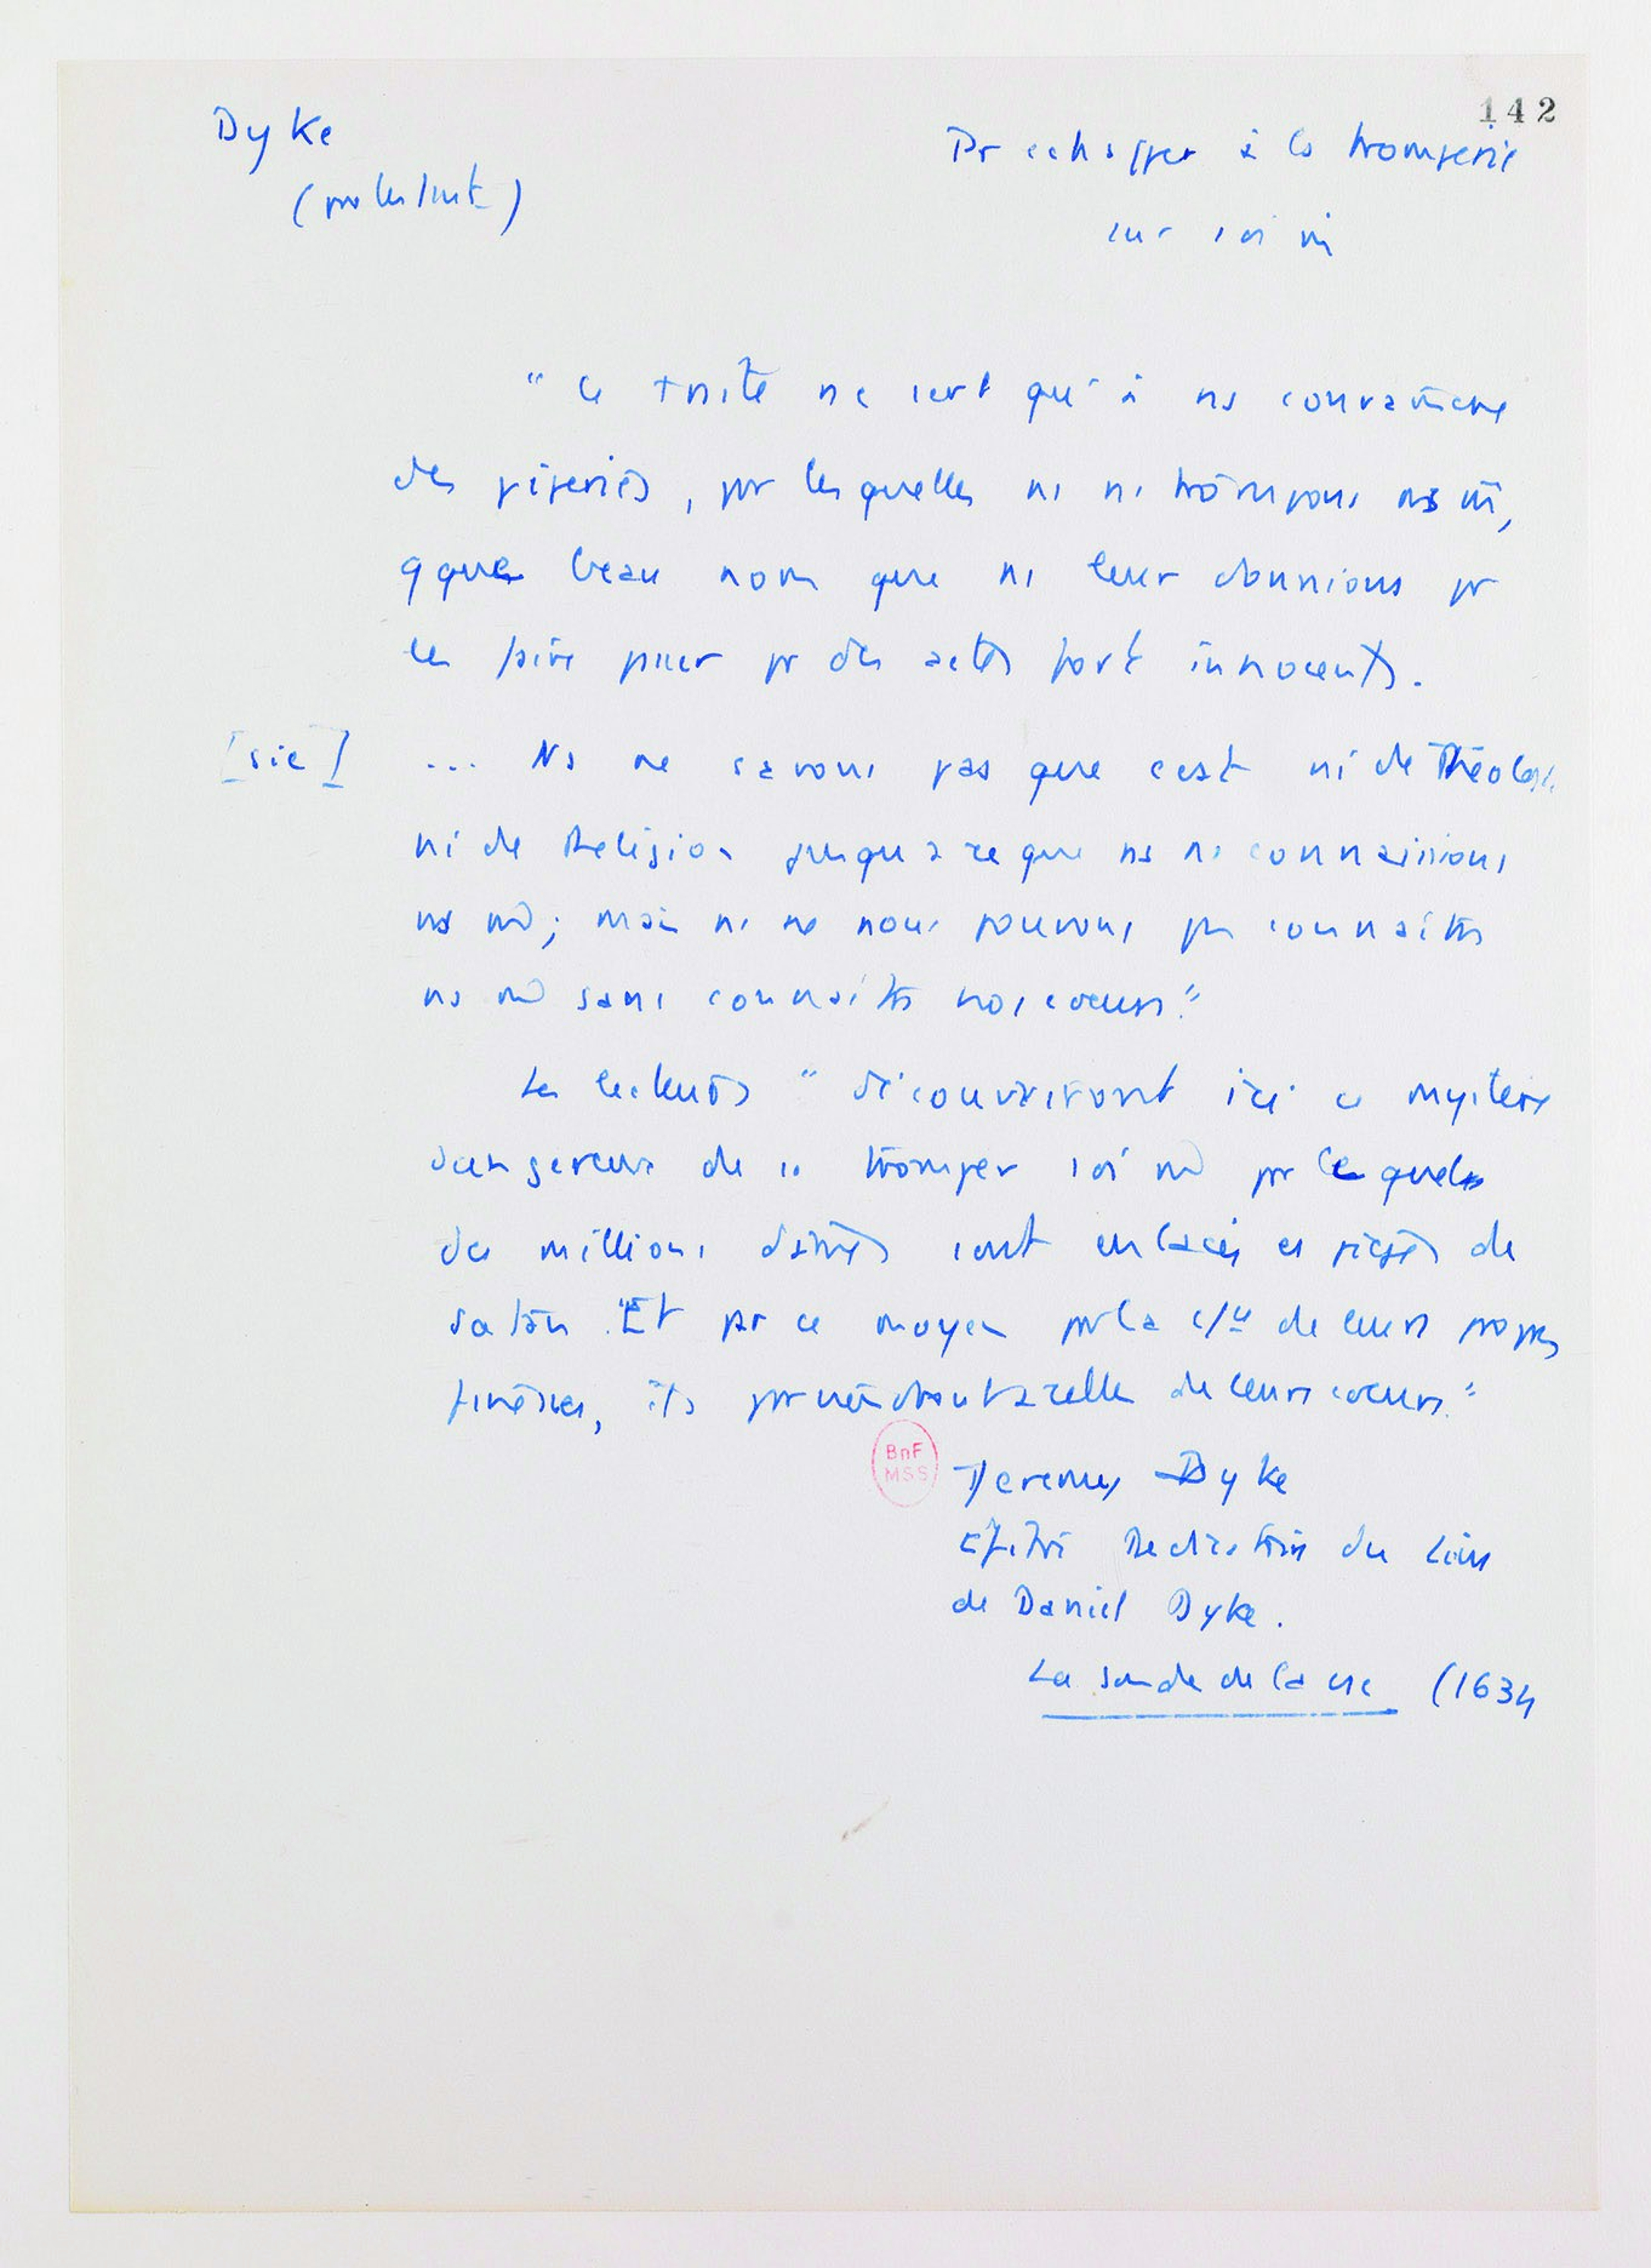 142
Dyke
(protestant)
Pr echapper à la tromperie
sur soi m̄
" Ce traité ne sert qu'à ns convaincre
des piperies, par lesquelles ns ns trompons ns m̄,
qque beau nom que ns leur donnions pr
les faire passer pr des actes fort innocents.
[sic] ... Ns ne savons pas que cest ni de Théologie
ni de Religion jusqu'à ce que ns ns connaissions
ns m̄; mais ns ne nous pouvons pas connaître
ns m̄ sans connaître nos cœurs."
Les lecteurs " découvriront ici ce mystère
dangereux de se tromper soi m̄ par lequel
des millions d'âmes sont enlacées es pièges de
Satan. "Et par ce moyen par la de leurs propres
finesses, ils celle de leurs cœurs."
BnF
MSS
Jeremy Dyke
Epitre Dedicatoire du Livre
de Daniel Dyke.
La sonde de la csc (1634